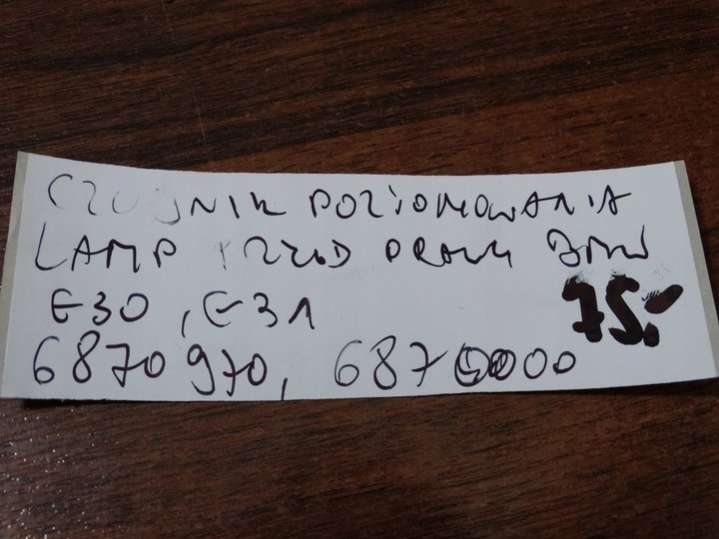 CZUJNIK POZIOMOWANIA
LAMP PRZÓD PRAWY BMW
E30, E31 75,-
6870970, 6870000